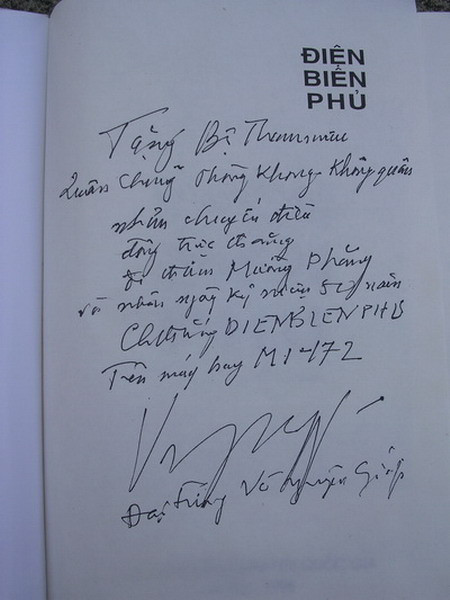 ĐIỆN
BIÊN
PHỦ
Tặng Bộ Tham mưu
Quân chủng Phòng Không - Không quân
nhân chuyến điều
động trực thăng
đi thăm Mường Phăng
và nhân ngày kỷ niệm 50 năm
Chthắng DIENBIENPHU
Trên máy bay MI-172
Đại tướng Võ Nguyên Giáp